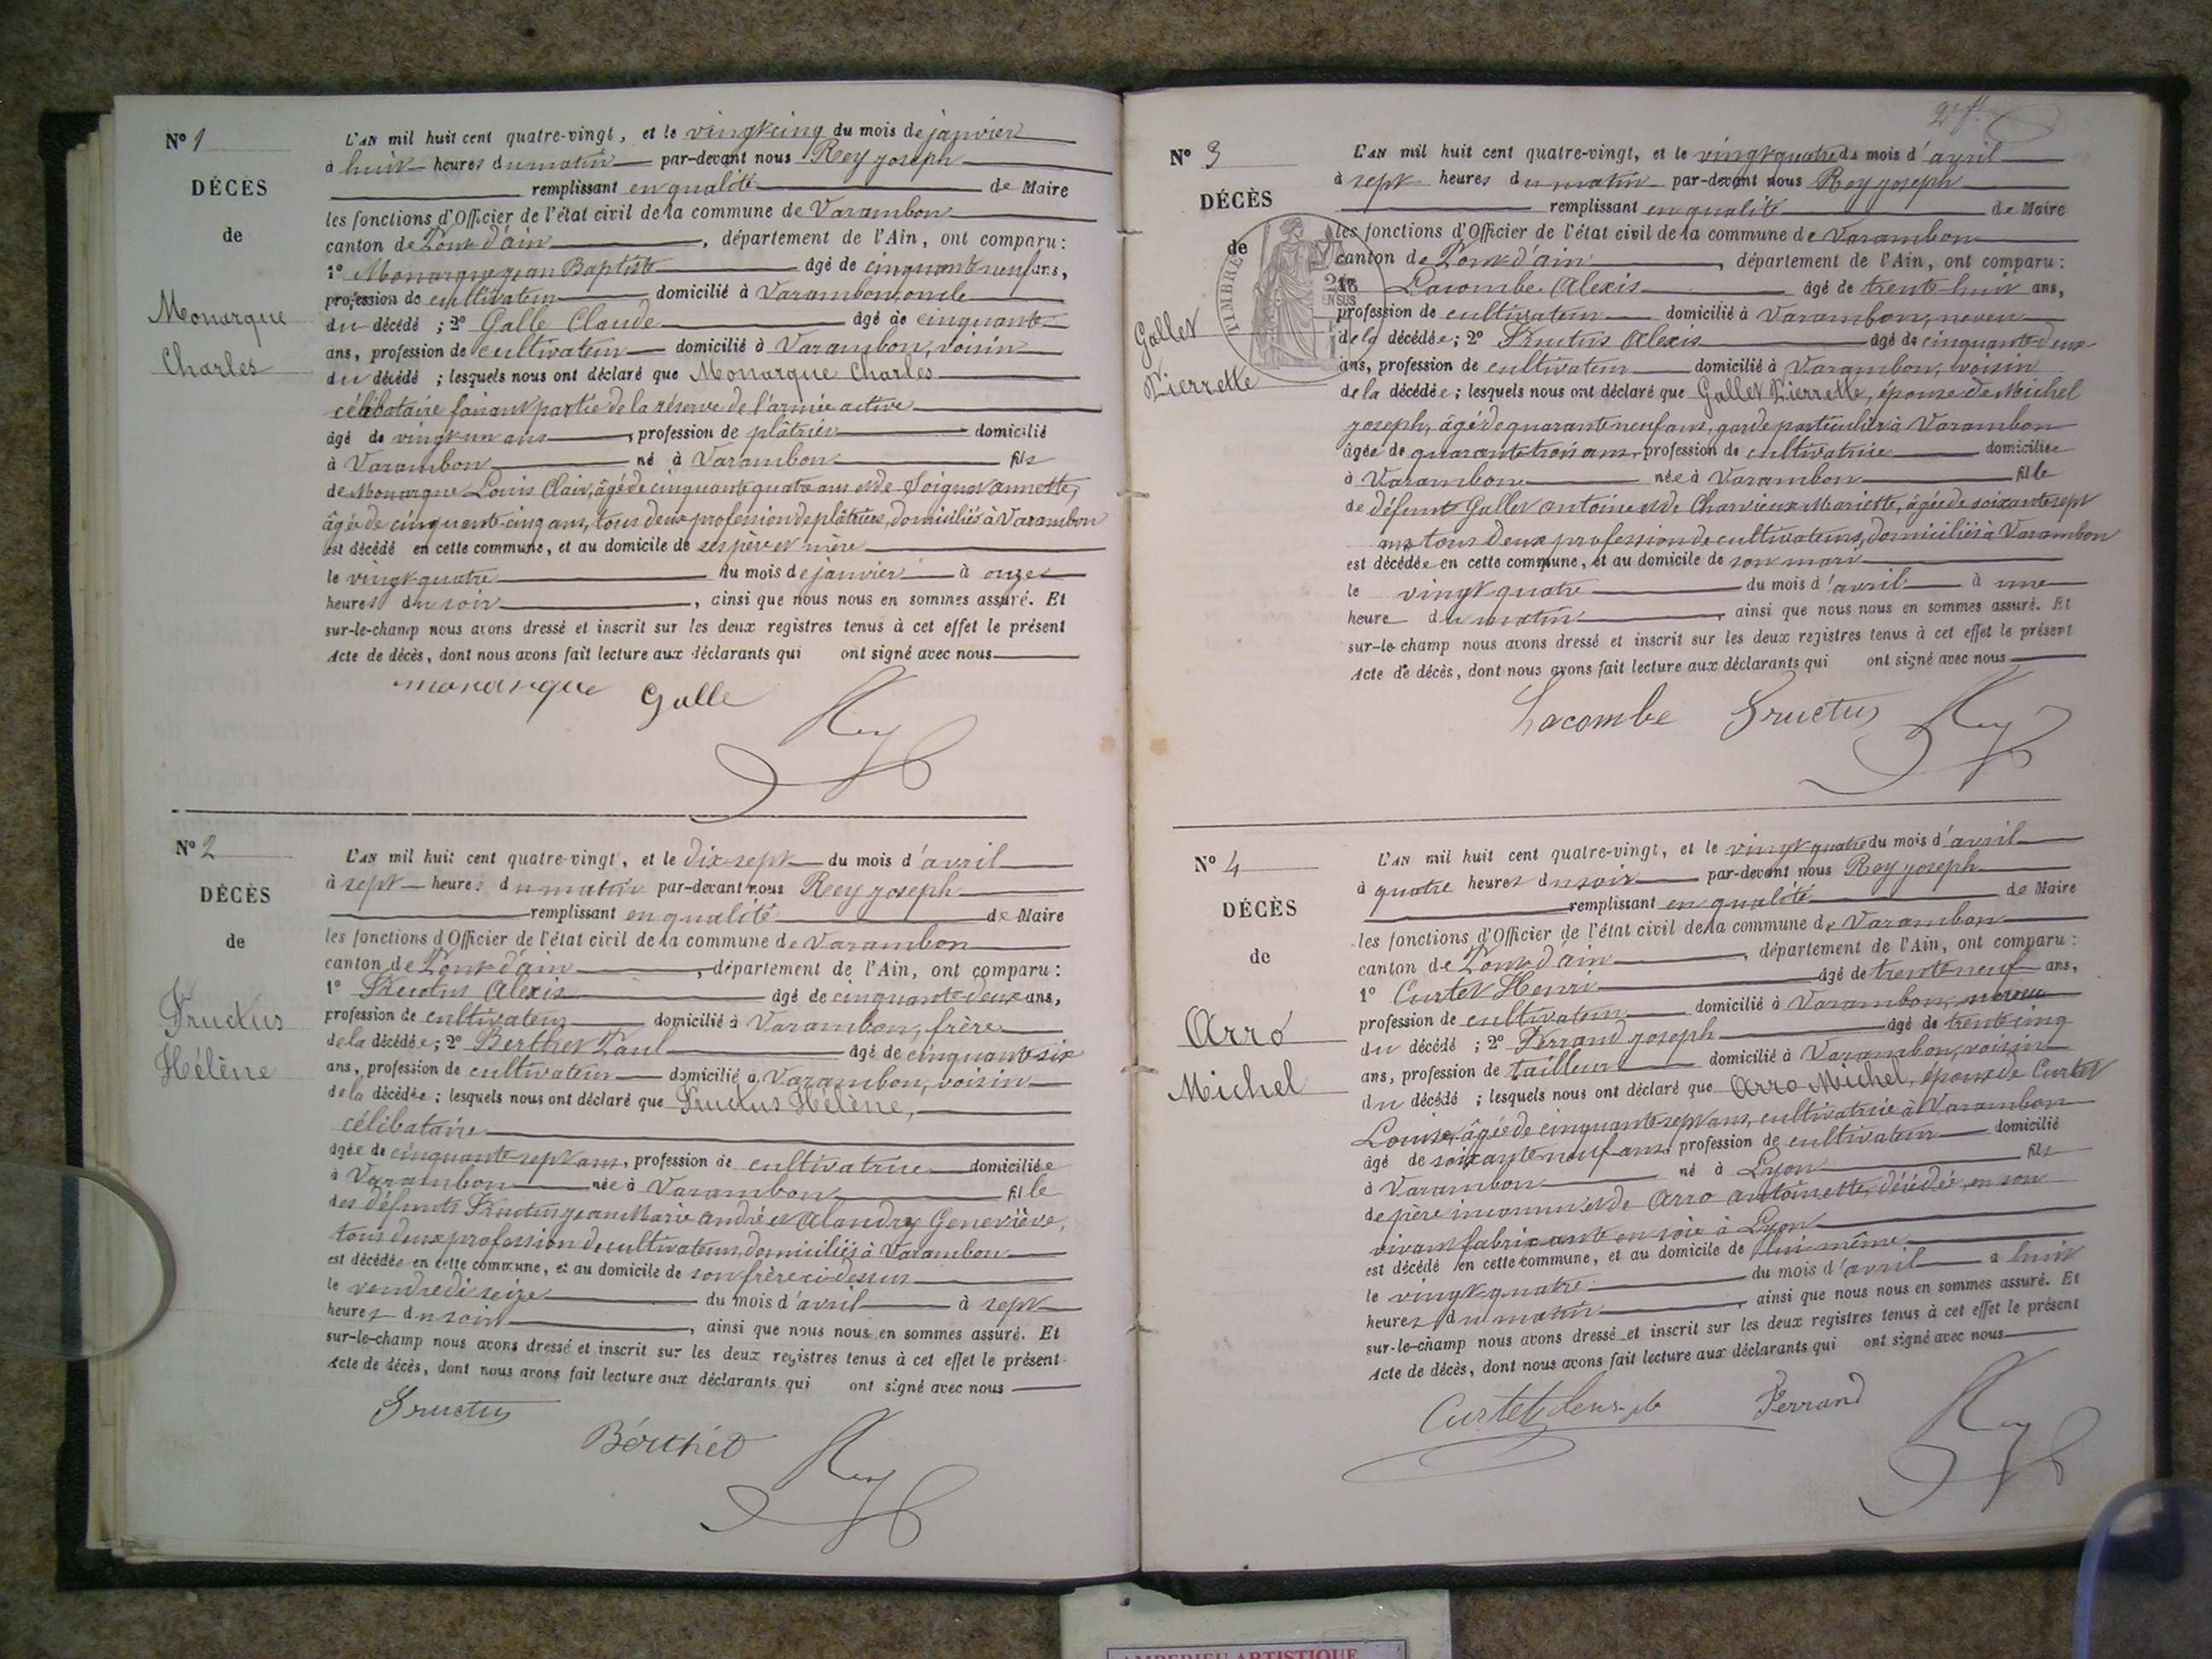 N° 1
DÉCÈS
de
Monarque
Charles
L'AN mil huit cent quatre-vingt, et le vingt cinq du mois de janvier
à huit heures du matin par-devant nous Rey joseph
remplissant en qualité de Maire
les fonctions d'Officier de l'état civil de la commune de Varambon
canton de Pont d'ain, département de l'Ain, ont comparu :
1° Monarque jean Baptiste âgé de cinquante neuf ans,
profession de cultivateur domicilié à Varambon, oncle
du décédé ; 2° Galle Claude âgé de cinquante
ans, profession de cultivateur domicilié à Varambon, voisin
du décédé ; lesquels nous ont déclaré que Monarque Charles
célibataire faisant partie de la réserve de l'armée active
âgé de vingt un ans, profession de plâtrier domicilié
à Varambon né à Varambon fils
de Monarque Louis Clair, âgé de cinquante quatre ans et de Soignat annette,
âgée de cinquante-cinq ans, tous deux profession de plâtriers, domiciliés à Varambon
est décédé en cette commune, et au domicile de ses père et mère
le vingt quatre du mois de janvier à onze
heures du soir, ainsi que nous nous en sommes assuré. Et
sur-le-champ nous avons dressé et inscrit sur les deux registres tenus à cet effet le présent
Acte de décès, dont nous avons fait lecture aux déclarants qui ont signé avec nous
monarque Galle Rey
N° 2
DÉCÈS
de
Fructus
Hélène
L'AN mil huit cent quatre-vingt, et le dix sept du mois d'avril
à sept heures du matin par-devant nous Rey joseph
remplissant en qualité de Maire
les fonctions d'Officier de l'état civil de la commune de Varambon
canton de Pont d'ain, département de l'Ain, ont comparu :
1° Fructus Alexis âgé de cinquante-deux ans,
profession de cultivateur domicilié à Varambon, frère
de la décédée ; 2° Berthet Paul âgé de cinquante six
ans, profession de cultivateur domicilié à Varambon, voisin
de la décédée ; lesquels nous ont déclaré que Fructus Hélène,
célibataire
âgée de cinquante-sept ans, profession de cultivatrice domiciliée
à Varambon née à Varambon fille
des défunts Fructus jean Marie andré et Alandry Geneviève,
tous deux profession de cultivateurs, domiciliés à Varambon
est décédée en cette commune, et au domicile de son frère ci-dessus
le vendredi seize du mois d'avril à sept
heures du soir, ainsi que nous nous en sommes assuré. Et
sur-le-champ nous avons dressé et inscrit sur les deux registres tenus à cet effet le présent
Acte de décès, dont nous avons fait lecture aux déclarants qui ont signé avec nous
Fructus
Berthet Rey
N° 3
DÉCÈS
de
TIMBRE
2/10
EN SUS
Gallet
Pierrette
L'AN mil huit cent quatre-vingt, et le vingt quatre du mois d'avril
à sept heures du matin par-devant nous Rey joseph
remplissant en qualité de Maire
les fonctions d'Officier de l'état civil de la commune de Varambon
canton de Pont d'ain, département de l'Ain, ont comparu :
1° Lacombe Alexis âgé de trente-huit ans,
profession de cultivateur domicilié à Varambon, neveu
de la décédée ; 2° Fructus Alexis âgé de cinquante deux
ans, profession de cultivateur domicilié à Varambon, voisin
de la décédée ; lesquels nous ont déclaré que Gallet Pierrette, épouse de Michel
joseph, âgé de quarante neuf ans, garde particulier à Varambon
âgée de quarante trois ans, profession de cultivatrice domiciliée
à Varambon née à Varambon fille
de défunt Gallet antoine et de Charvieux Mariette, âgée de soixante sept
ans tous deux profession de cultivateurs, domiciliés à Varambon
est décédée en cette commune, et au domicile de son mari
le vingt quatre du mois d'avril à une
heure du matin, ainsi que nous nous en sommes assuré. Et
sur-le-champ nous avons dressé et inscrit sur les deux registres tenus à cet effet le présent
Acte de décès, dont nous avons fait lecture aux déclarants qui ont signé avec nous
Lacombe Fructus Rey
N° 4
DÉCÈS
de
Arro
Michel
L'AN mil huit cent quatre-vingt, et le vingt quatre du mois d'avril
à quatre heures du soir par-devant nous Rey joseph
remplissant en qualité de Maire
les fonctions d'Officier de l'état civil de la commune de Varambon
canton de Pont d'ain, département de l'Ain, ont comparu :
1° Curtet Henri âgé de trente neuf ans,
profession de cultivateur domicilié à Varambon, neveu
du décédé ; 2° Ferrand joseph âgé de trente cinq
ans, profession de tailleur domicilié à Varambon, voisin
du décédé ; lesquels nous ont déclaré que Arro Michel, époux de Curtet
Louise, âgée de cinquante sept ans, cultivatrice à Varambon
âgé de soixante neuf ans, profession de cultivateur domicilié
à Varambon né à Lyon fils
de père inconnu et de Arro antoinette, décédée, en son
vivant fabricante en soie à Lyon
est décédé en cette commune, et au domicile de lui même
le vingt-quatre du mois d'avril à huit
heures du matin, ainsi que nous nous en sommes assuré. Et
sur-le-champ nous avons dressé et inscrit sur les deux registres tenus à cet effet le présent
Acte de décès, dont nous avons fait lecture aux déclarants qui ont signé avec nous
Curtet Ferrand Rey
AMBERIEU ARTISTIQUE